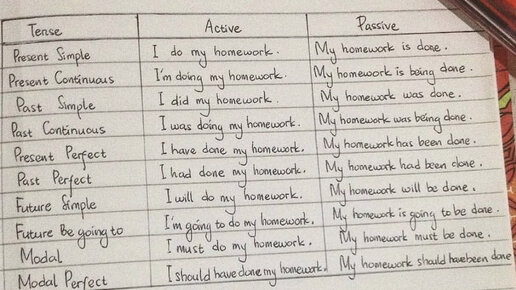 Tense Active Passive
Present Simple I do my homework. My homework is done.
Present Continuous I'm doing my homework. My homework is being done.
Past Simple I did my homework. My homework was done.
Past Continuous I was doing my homework. My homework was being done.
Present Perfect I have done my homework. My homework has been done.
Past Perfect I had done my homework. My homework had been done.
Future Simple I will do my homework. My homework will be done.
Future Be going to I'm going to do my homework. My homework is going to be done.
Modal I must do my homework. My homework must be done.
Modal Perfect I should have done my homework. My homework should have been done